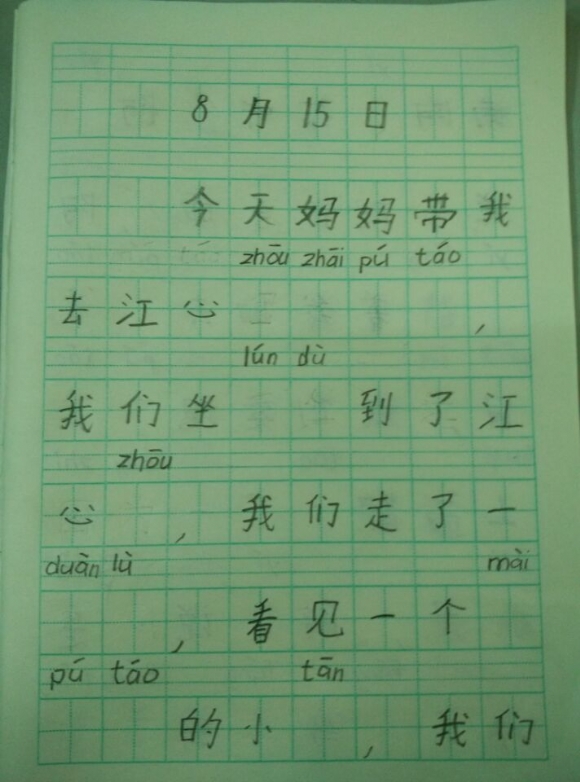 8月15日
今天妈妈带我
zhōu zhāi pú táo
去江心,
lún dù
我们坐到了江
zhōu
心,我们走了一
duàn lù mài
,看见一个
pú táo tān
的小,我们